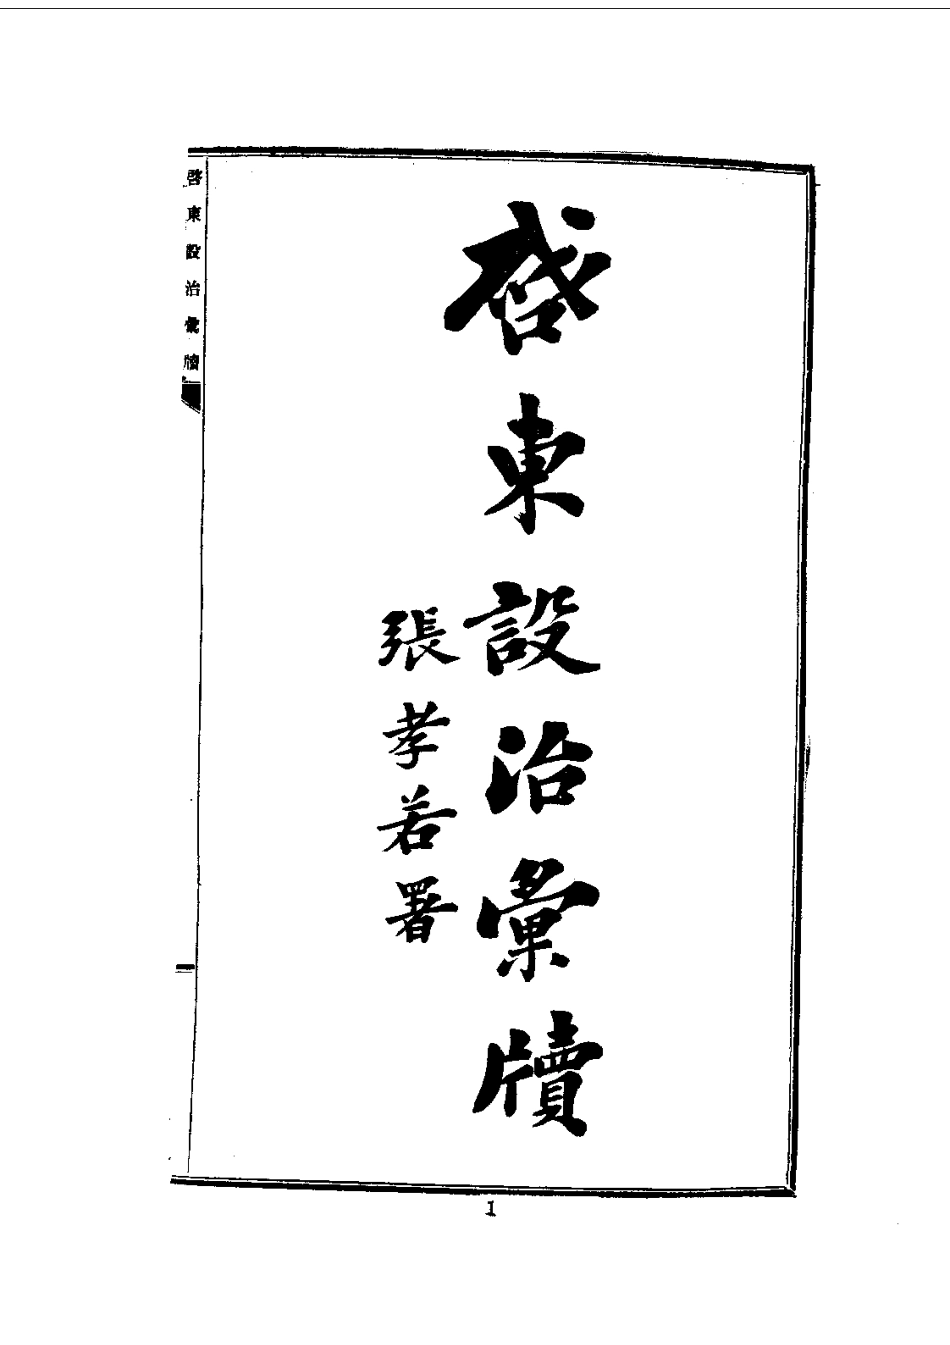 啓東設治彙牘
張孝若署
啓東設治彙牘
1